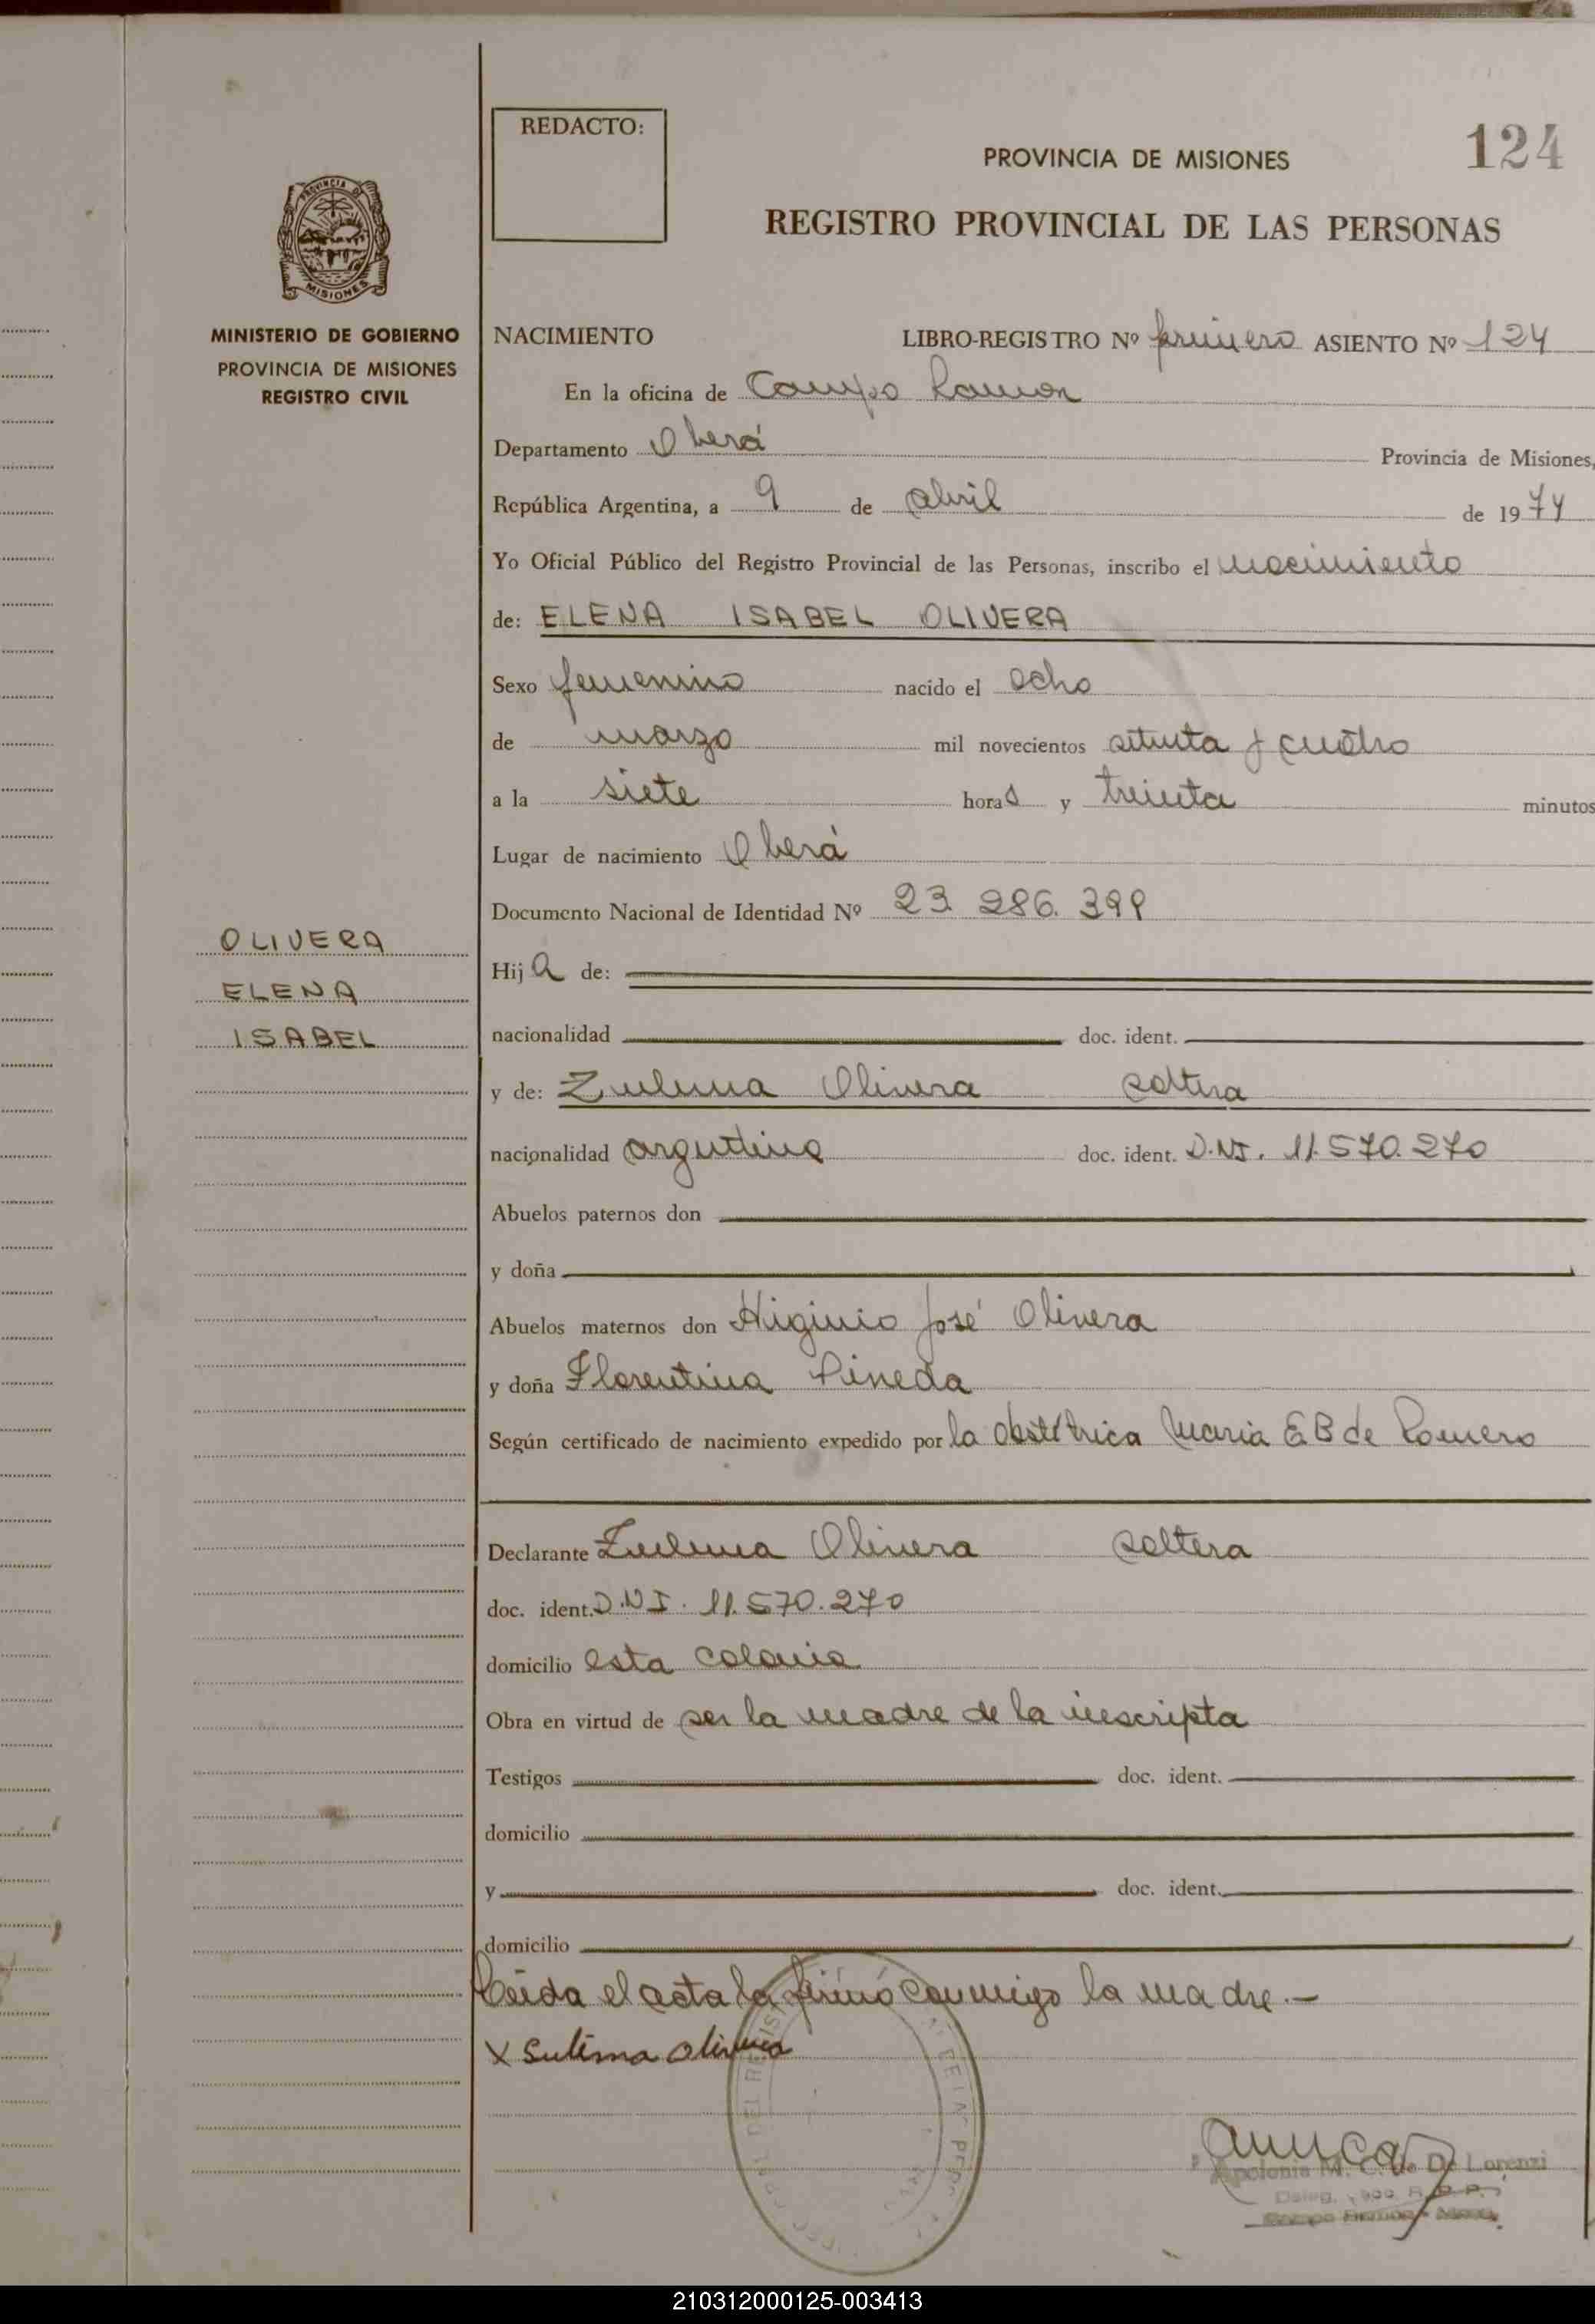 REDACTO:
PROVINCIA DE MISIONES
124
REGISTRO PROVINCIAL DE LAS PERSONAS
PROVINCIA DE
MISIONES
MINISTERIO DE GOBIERNO
PROVINCIA DE MISIONES
REGISTRO CIVIL
NACIMIENTO LIBRO-REGISTRO Nº primero ASIENTO Nº 124
En la oficina de Campo Ramon
Departamento Oberá Provincia de Misiones,
República Argentina, a 9 de abril de 1974
Yo Oficial Público del Registro Provincial de las Personas, inscribo el nacimiento
de: ELENA ISABEL OLIVERA
Sexo femenino nacido el ocho
de marzo mil novecientos setenta y cuatro
a la siete horas y treinta minutos
Lugar de nacimiento Oberá
Documento Nacional de Identidad Nº 23.286.399
OLIVERA
ELENA
ISABEL
Hija de:
nacionalidad doc. ident.
y de: Zulema Olivera soltera
nacionalidad argentina doc. ident. D.N.I. 11.570.270
Abuelos paternos don
y doña
Abuelos maternos don Higinio José Olivera
y doña Florentina Pineda
Según certificado de nacimiento expedido por la obstétrica Maria E B de Romero
Declarante Zulema Olivera soltera
doc. ident. D.N.I. 11.570.270
domicilio esta colonia
Obra en virtud de ser la madre de la inscripta
Testigos doc. ident.
domicilio
y doc. ident.
domicilio
Leida el acta la firmó conmigo la madre.-
X Sulema Olivera
Apolonia M. C. de De Lorenzi
210312000125-003413